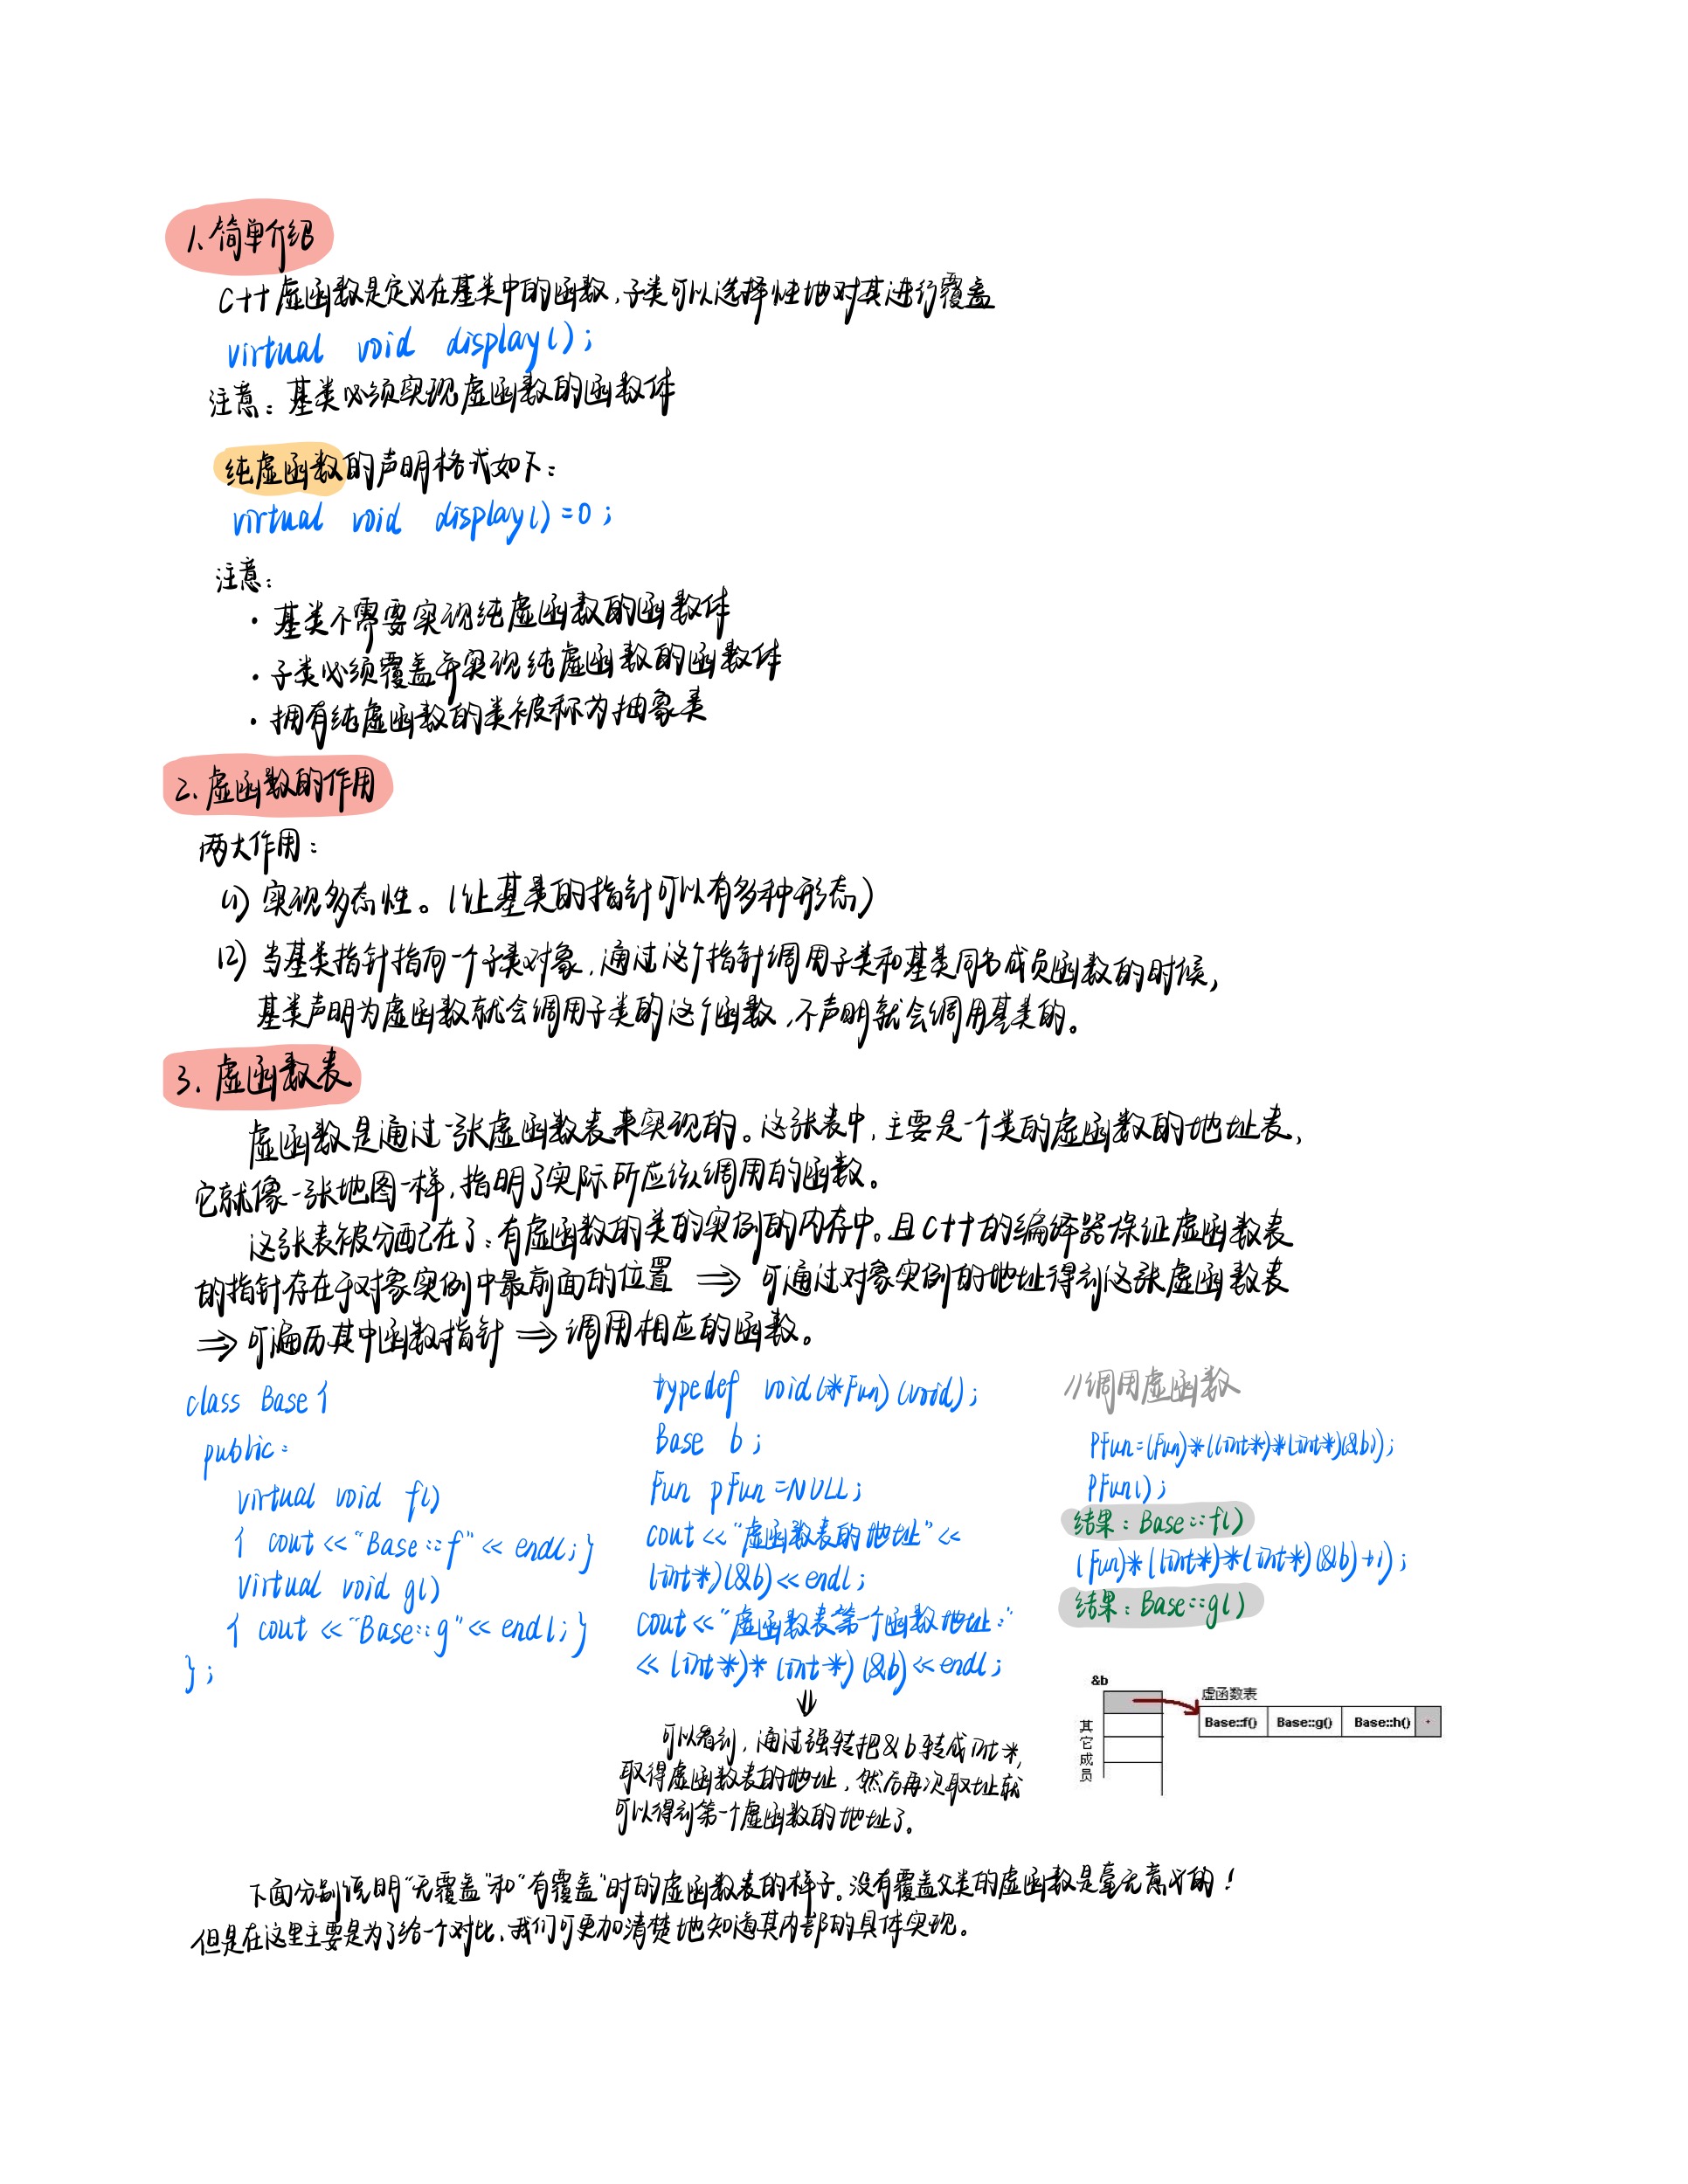 1、简单介绍
C++虚函数是定义在基类中的函数,子类可以选择性地对其进行覆盖
virtual void display();
注意：基类必须实现虚函数的函数体
纯虚函数的声明格式如下：
virtual void display()=0;
注意：
· 基类不需要实现纯虚函数的函数体
· 子类必须覆盖并实现纯虚函数的函数体
· 拥有纯虚函数的类被称为抽象类
2、虚函数的作用
两大作用：
(1) 实现多态性。(让基类的指针可以有多种形态)
(2) 当基类指针指向一个子类对象,通过这个指针调用子类和基类同名成员函数的时候,
基类声明为虚函数就会调用子类的这个函数,不声明就会调用基类的。
3. 虚函数表
虚函数是通过一张虚函数表来实现的。这张表中,主要是一个类的虚函数的地址表,
它就像一张地图一样,指明了实际所应该调用的函数。
这张表被分配在了：有虚函数的类的实例的内存中。且C++的编译器保证虚函数表
的指针存在于对象实例中最前面的位置 ⇒ 可通过对象实例的地址得到这张虚函数表
⇒ 可遍历其中函数指针 ⇒ 调用相应的函数。
class Base {
public:
virtual void f()
{ cout << "Base::f" << endl; }
virtual void g()
{ cout << "Base::g" << endl; }
};
typedef void(*Fun)(void);
Base b;
Fun pFun=NULL;
cout << "虚函数表的地址" <<
(int*)(&b) << endl;
cout << "虚函数表第一个函数地址:"
<< (int*)*(int*)(&b) << endl;
⇓
可以看到,通过强转把&b转成int*,
取得虚函数表的地址,然后再次取址就
可以得到第一个虚函数的地址了。
//调用虚函数
PFun=(Fun)*((int*)*(int*)(&b));
PFun();
结果：Base::f()
(Fun)*((int*)*(int*)(&b)+1);
结果：Base::g()
&b
虚函数表
Base::f() Base::g() Base::h()
其它成员
下面分别说明"无覆盖"和"有覆盖"时的虚函数表的样子。没有覆盖父类的虚函数是毫无意义的！
但是在这里主要是为了给一个对比,我们可更加清楚地知道其内部的具体实现。